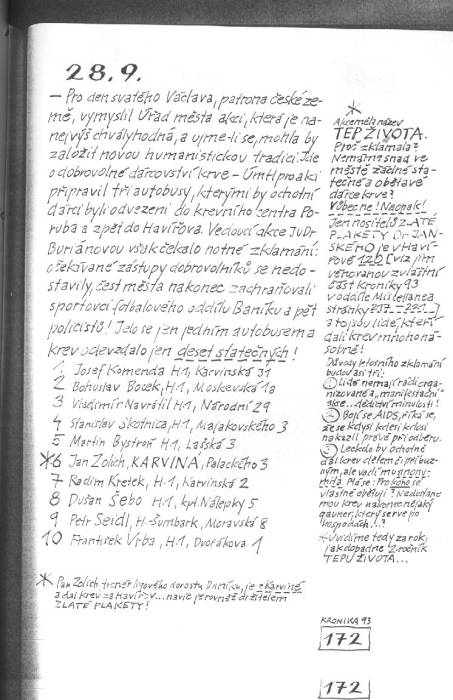 28.9.
— Pro den svatého Václava, patrona české ze-
mě, vymyslil Úřad města akci, která je na-
nejvýš chvályhodná, a ujme-li se, mohla by
založit novou humanistickou tradici. Jde
o dobrovolné dárcovství krve – ÚmH pro akci
připravil tři autobusy, kterými by ochotní
dárci byli odvezeni do krevního centra Po-
ruba a zpět do Havířova. Vedoucí akce JuDr
Buriánovou však čekalo notné zklamání:
očekávané zástupy dobrovolníků se nedo-
stavily, čest města nakonec zachraňovali
sportovci fotbalového oddílu Baníku a pět
policistů! Jelo se jen jedním autobusem a
krev odevzdalo jen deset statečných!
1 Josef Komenda H.1, Karvinská 31
2 Bohuslav Bocek, H.1, Moskevská 1a
3 Vladimír Navrátil H.1, Národní 29
4 Stanislav Skotnica, H.1, Majakovského 3
5 Martin Bystroň H.1, Lašská 3
* 6 Jan Zolich, KARVINÁ, Palackého 3
7 Radim Křetek, H.1, Karvinská 2
8 Dušan Šebo H.1, kpt. Nálepky 5
9 Petr Seidl, H.-Šumbark, Moravská 8
10 František Vrba, H.1, Dvořákova 1
* Jan Zolich trenér ligového dorostu Baníku, je z Karviné
a dal krev za Havířov... navíc je rovněž držitelem
ZLATÉ PLAKETY!
*
Akce měla název
TEP ŽIVOTA.
Proč zklamala?
Nemáme snad ve
městě žádné sta-
tečné a obětavé
dárce krve?
Vůbec ne! Naopak!
Jen nositelů ZLATÉ
PLAKETY Dr JAN-
SKÉHO je v Haví-
řově 120 [viz jim
věnovanou zvláštní
část Kroniky 93
v oddíle Miscellanea
stránky]
a to jsou lidé, kteří
dali krev mnohoná-
sobně!
Důvody letošního zklamání
budou asi tři:
1) Lidé nemají rádi orga-
nizované a „manifestační"
akce... dědictví minulosti!
2) Bojí se AIDS, říká se,
že se kdysi kdesi kdosi
nakazil právě při odběru.
3) Leckdo by ochotně
dal krev dětem či příbuz-
ným, ale vadí mu anony-
mita. Ptá se: Pro koho se
vlastně obětuji? Nedostane
mou krev nakonec nějaký
gauner, který se rve po
hospodách..!?
Uvidíme tedy za rok,
jak dopadne 2. ročník
TEPU ŽIVOTA...
KRONIKA 93
172
172